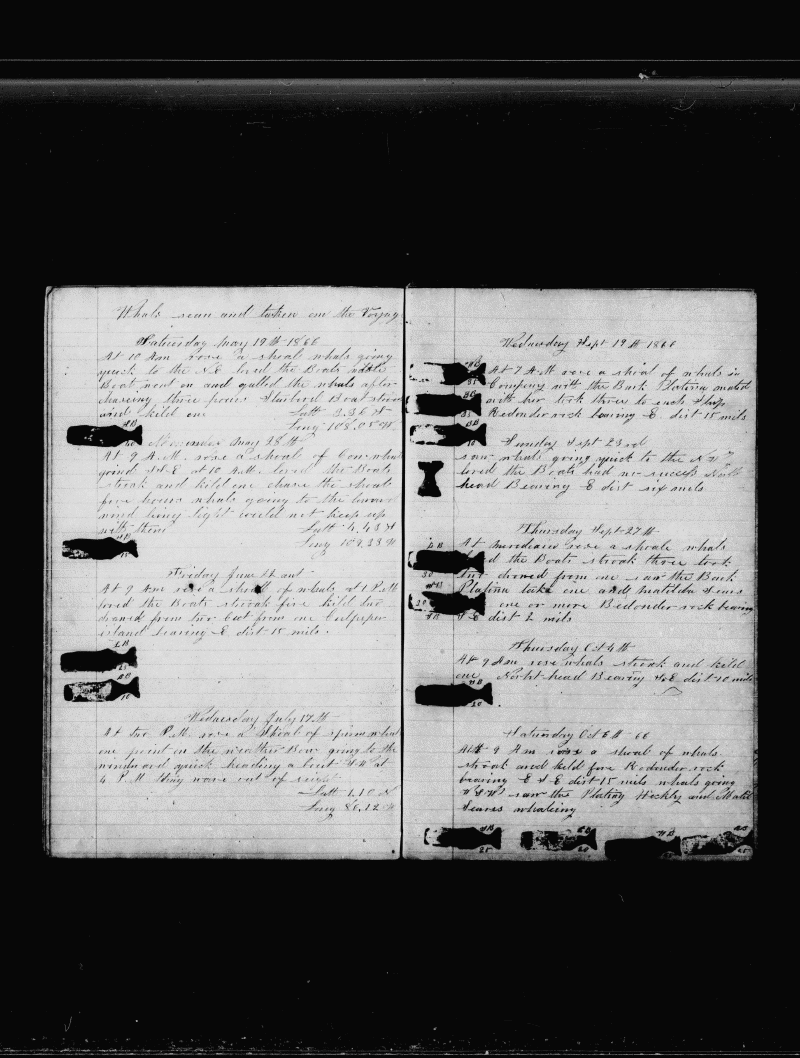 Whals sean and taken on the Voyag
Saturday May 19th 1866
At 10 Am rose a shoal whals going
quick to the N.E lored the Boats
Boat went on and gallied the whals after
chasing three hours Starbord Boat
and kild one Latt 3.36 N
Long 108.05 W
May 28th
At 9 A.M. rose a shoal of Cow whals
going at 10 A.M. lored the Boats
strook and kild one chase the shoal
five hours whals going to the
wind being light would not keep up
with them Latt 4.43 N
Long 109.28 W
Friday June
At 9 Am rose a shoal of whals at 1 P.M
lored the Boats strook five kild two
drawd from two Cut from one Culpeper
island bearing E dist 15 mils.
Wednesday July
At two P.M. rose a Shoal of sperm whal
one point on the weather Bow going to the
windward quick heading a bout at
4 P.M they ware out of sight
Latt 1.10
Long 86.12 W
Wednesday Sept 19th 1866
At 7 A.M rose a shoal of whals in
Company with the Bark Platina mated
with her took three to each Ship
Redonder rock bearing E. dist 15 mils
Sunday Sept 23rd
saw whals going quick to the
lored the Boats had no success North
head Bearing E dist six mils
Thursday Sept 27th
At meridian rose a shoale whals
the Boats strook three took
two drawed from one saw the Bark
Platina take one and Matilda Sears
one or more Redonder rock bearing
S E dist 2 mils
Thursday Oct 4th
At 9 Am rose whals strook and kild
one North head Bearing dist 10 mils
Saturday Oct 6th 66
At 9 Am rose a shoal of whals
strook and kild five Redonder rock
bearing E S E dist 15 mils whals going
saw the Platina and Matil
Seares whaleing